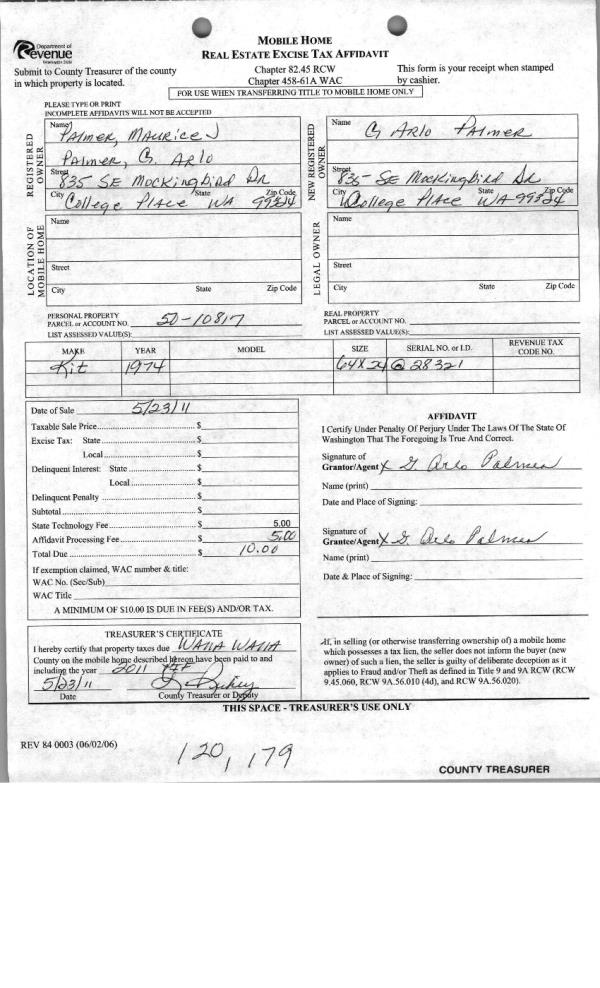 Department of
Revenue
Washington State
MOBILE HOME
REAL ESTATE EXCISE TAX AFFIDAVIT
Submit to County Treasurer of the county
in which property is located.
Chapter 82.45 RCW
Chapter 458-61A WAC
This form is your receipt when stamped
by cashier.
FOR USE WHEN TRANSFERRING TITLE TO MOBILE HOME ONLY
PLEASE TYPE OR PRINT
INCOMPLETE AFFIDAVITS WILL NOT BE ACCEPTED
REGISTERED OWNER
Name PALMER, MAURICE J
PALMER, G. ARLO
Street 835 SE Mockingbird DR
City College Place State WA Zip Code 99324
NEW REGISTERED OWNER
Name G ARLO PALMER
Street 835 SE Mockingbird Dr
City College Place State WA Zip Code 99324
LOCATION OF MOBILE HOME
Name
Street
City State Zip Code
LEGAL OWNER
Name
Street
City State Zip Code
PERSONAL PROPERTY
PARCEL or ACCOUNT NO. 50-10817
LIST ASSESSED VALUE(S):
REAL PROPERTY
PARCEL or ACCOUNT NO.
LIST ASSESSED VALUE(S):
MAKE YEAR MODEL SIZE SERIAL NO. or I.D. REVENUE TAX CODE NO.
Kit 1974 64X24 @ 28321
Date of Sale 5/23/11
Taxable Sale Price $
Excise Tax: State $
Local $
Delinquent Interest: State $
Local $
Delinquent Penalty $
Subtotal $
State Technology Fee $ 5.00
Affidavit Processing Fee $ 5.00
Total Due $ 10.00
If exemption claimed, WAC number & title:
WAC No. (Sec/Sub)
WAC Title
A MINIMUM OF $10.00 IS DUE IN FEE(S) AND/OR TAX.
AFFIDAVIT
I Certify Under Penalty Of Perjury Under The Laws Of The State Of
Washington That The Foregoing Is True And Correct.
Signature of
Grantor/Agent X G. Arlo Palmer
Name (print)
Date and Place of Signing:
Signature of
Grantee/Agent X G. Arlo Palmer
Name (print)
Date & Place of Signing:
TREASURER'S CERTIFICATE
I hereby certify that property taxes due WALLA WALLA
County on the mobile home described hereon have been paid to and
including the year 2011
5/23/11
Date County Treasurer or Deputy
If, in selling (or otherwise transferring ownership of) a mobile home
which possesses a tax lien, the seller does not inform the buyer (new
owner) of such a lien, the seller is guilty of deliberate deception as it
applies to Fraud and/or Theft as defined in Title 9 and 9A RCW (RCW
9.45.060, RCW 9A.56.010 (4d), and RCW 9A.56.020).
THIS SPACE - TREASURER'S USE ONLY
REV 84 0003 (06/02/06)
120,179
COUNTY TREASURER